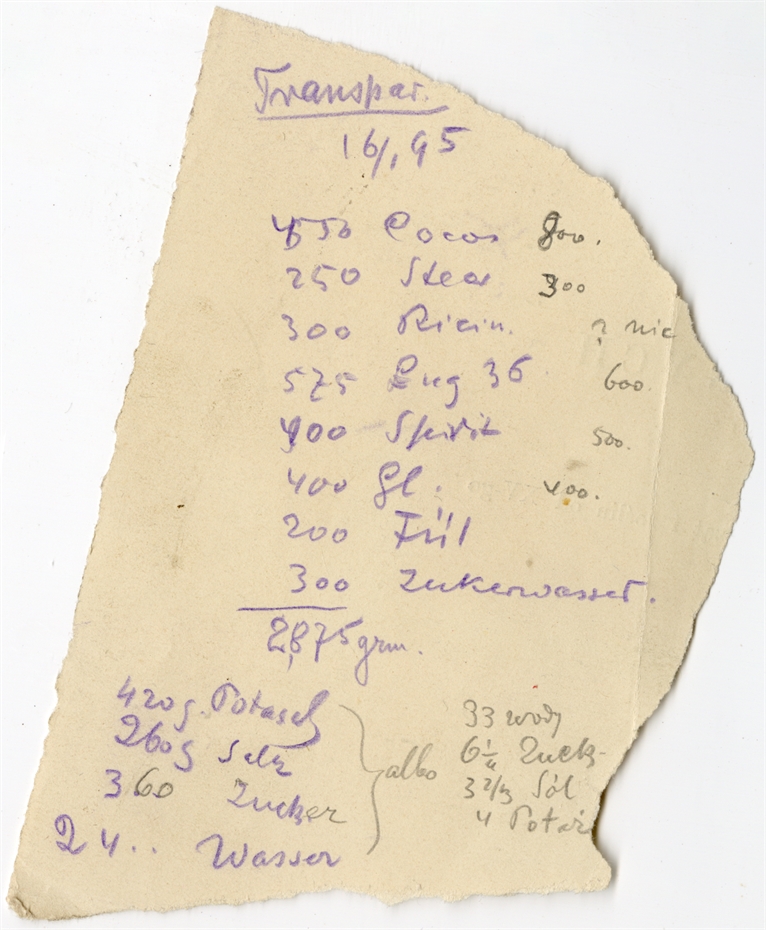 Transpar.
16/1 95
450 Cocos 800.
250 Stear 300
300 Ricin. ? nic
575 Lug 36 600.
400 Spirit 500.
400 Gl. 400.
200 Füll
300 Zukerwasser.
2,875 grm.
420 g. Potasch
260 g Salz
360 Zucker
24.. Wasser
albo
33 wody
6 1/4 Zuck-
3 2/3 Sól
4 Potaż